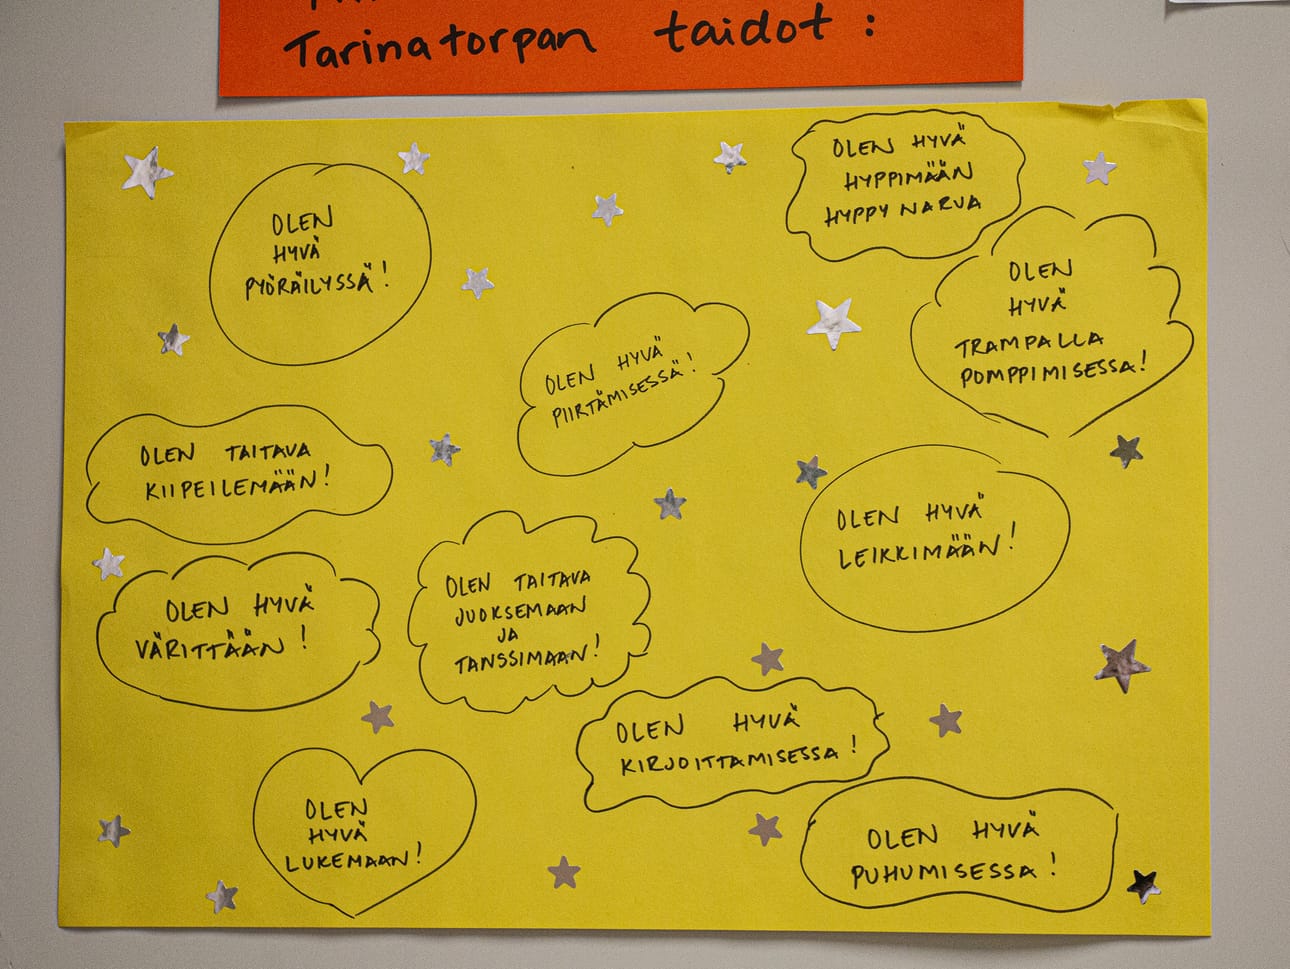 Tarinatorpan taidot :
OLEN
HYVÄ
PYÖRÄILYSSÄ!
OLEN HYVÄ
HYPPIMÄÄN
HYPPYNARUA
OLEN
HYVÄ
TRAMPALLA
POMPPIMISESSA!
OLEN HYVÄ
PIIRTÄMISESSÄ!
OLEN TAITAVA
KIIPEILEMÄÄN!
OLEN HYVÄ
LEIKKIMÄÄN!
OLEN HYVÄ
VÄRITTÄÄN!
OLEN TAITAVA
JUOKSEMAAN
JA
TANSSIMAAN!
OLEN HYVÄ
KIRJOITTAMISESSA!
OLEN
HYVÄ
LUKEMAAN!
OLEN HYVÄ
PUHUMISESSA!